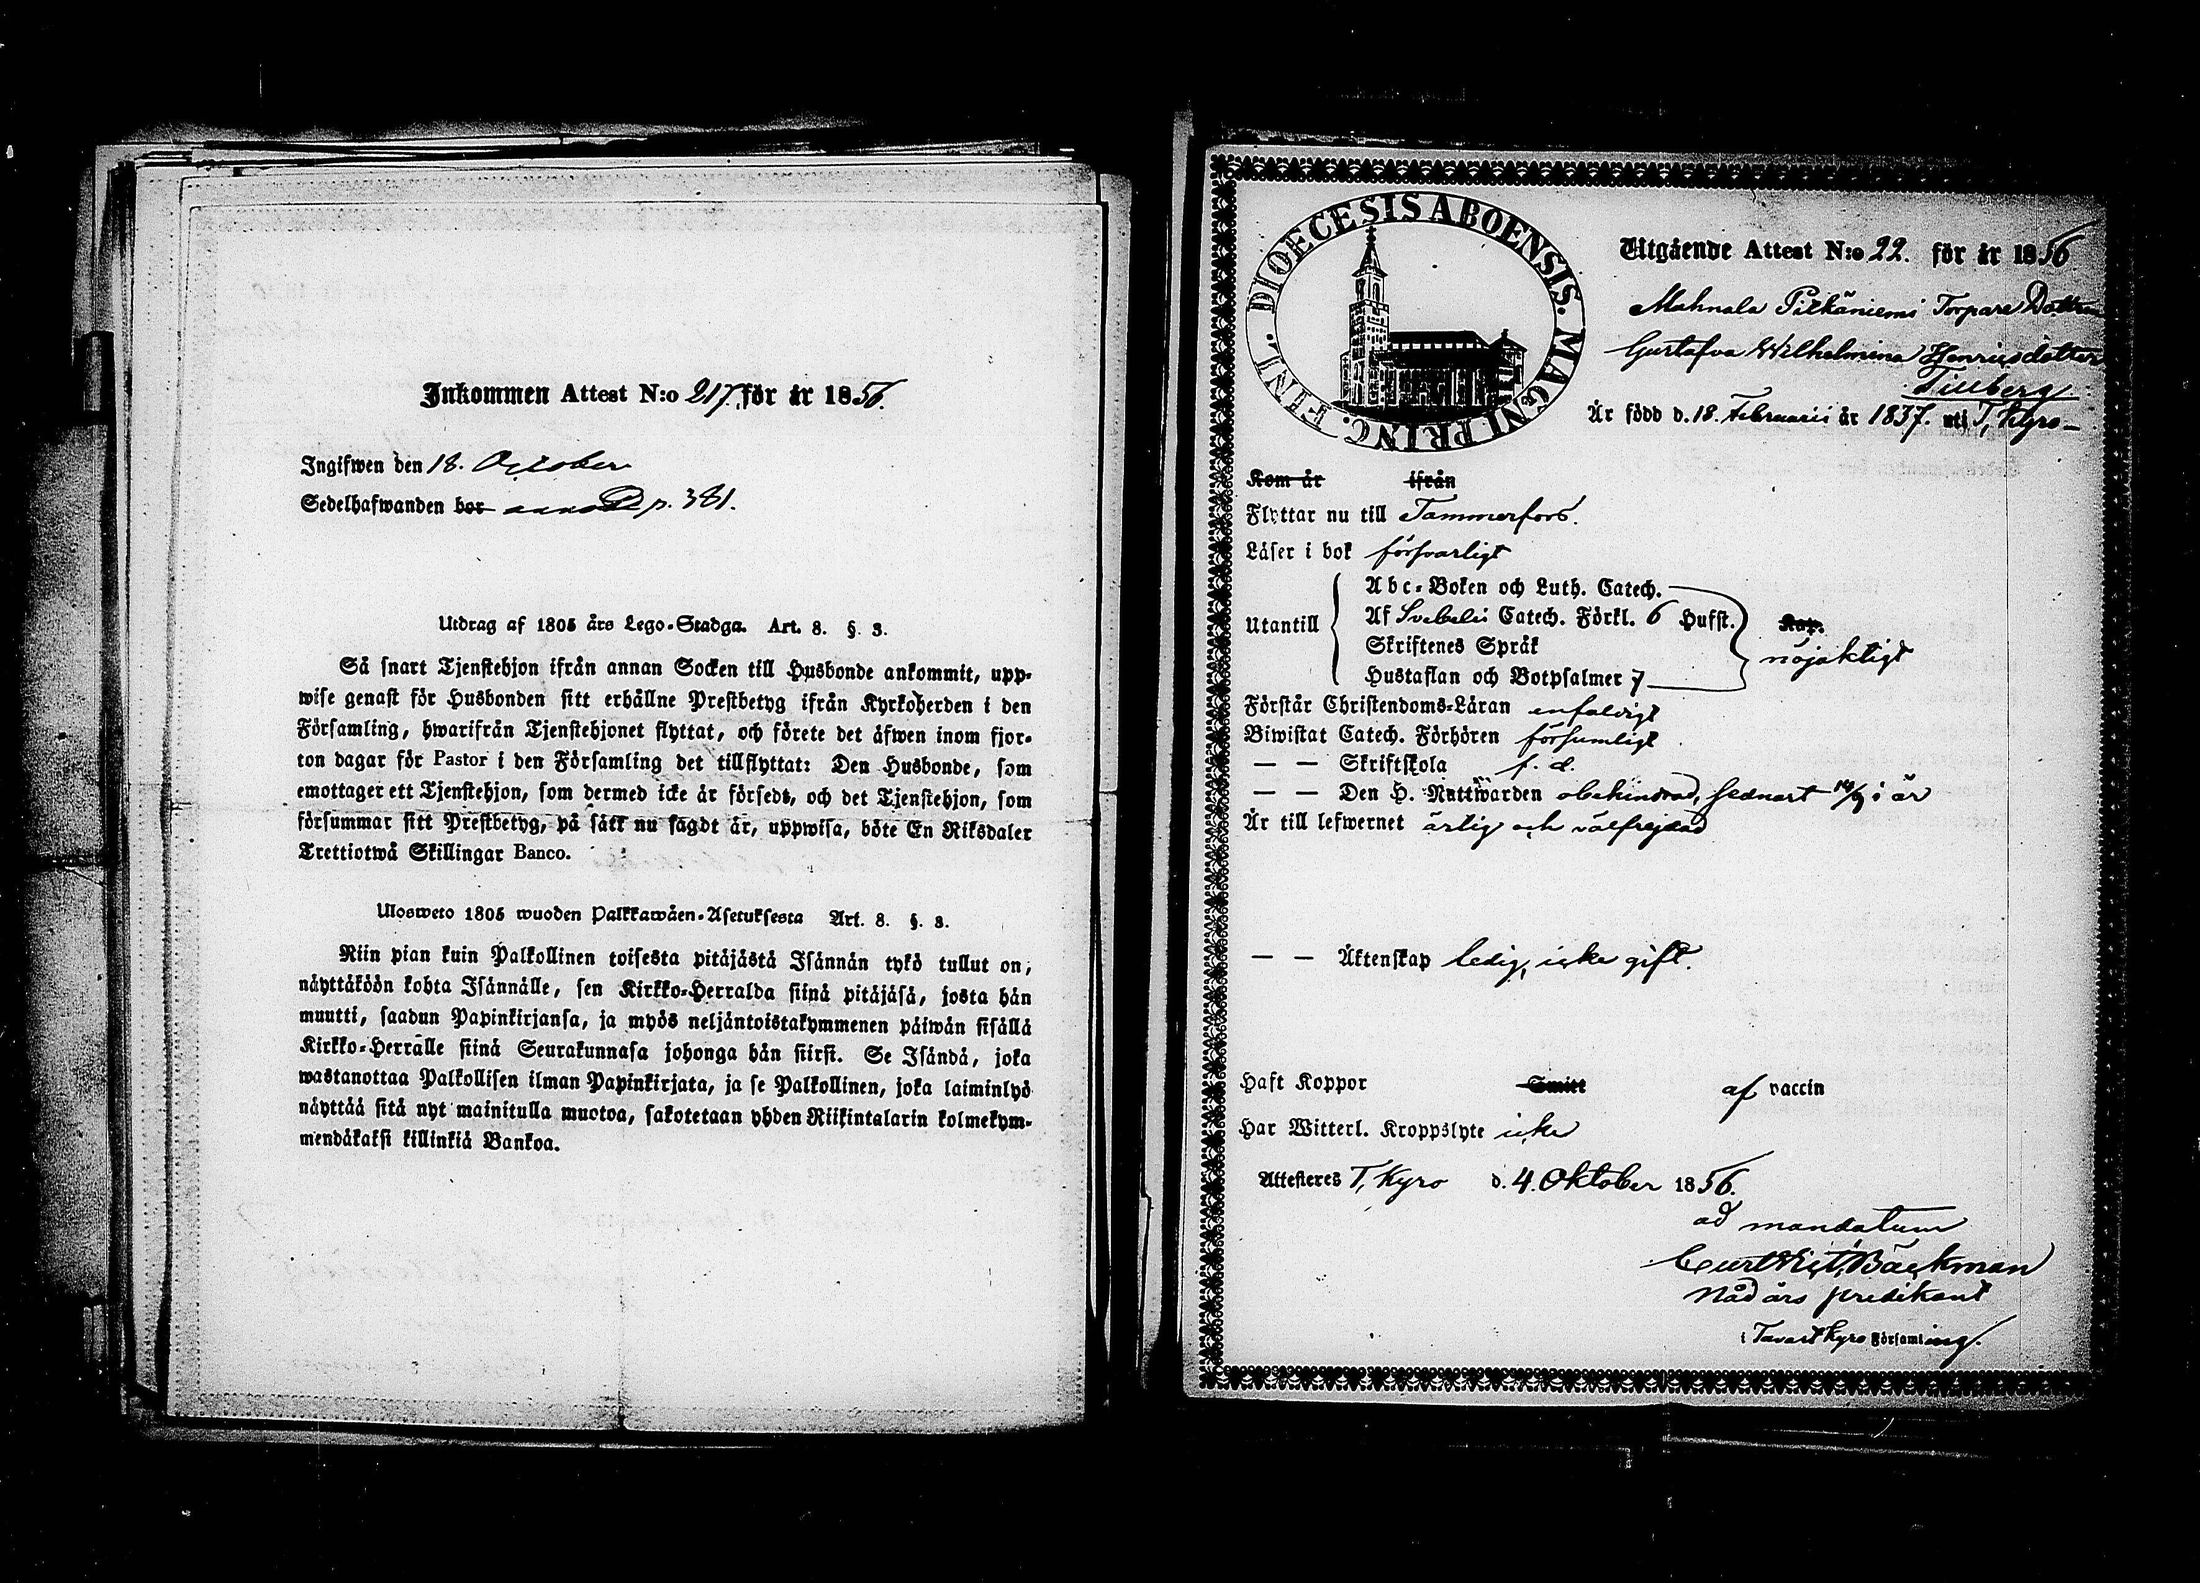 Inkommen Attest N:o 217. för år 1856.
Ingifwen den 18. October
Sedelhafwanden bor p. 381.
Utdrag af 1805 års Lego-Stadga. Art. 8. §. 3.
Så snart Tjenstehjon ifrån annan Socken till Husbonde ankommit, upp-
wise genast för Husbonden sitt erhållne Prestbetyg ifrån Kyrkoherden i den
Församling, hwarifrån Tjenstehjonet flyttat, och förete det äfwen inom fjor-
ton dagar för Pastor i den Församling det tillflyttat: Den Husbonde, som
emottager ett Tjenstehjon, som dermed icke är försedt, och det Tjenstehjon, som
försummar sitt Prestbetyg, på sätt nu sagdt är, uppwisa, böte En Riksdaler
Trettiotwå Skillingar Banco.
Ulosweto 1805 wuoden Palkkawäen-Asetuksesta Art. 8. §. 3.
Niin pian kuin Palkollinen toisesta pitäjästä Isännän tykö tullut on,
näyttäköön kohta Isännälle, sen Kirkko-Herralda siinä pitäjäsä, josta hän
muutti, saadun Papinkirjansa, ja myös neljäntoistakymmenen päiwän sisällä
Kirkko-Herralle siinä Seurakunnasa johonga hän siirsi. Se Isändä, joka
wastanottaa Palkollisen ilman Papinkirjata, ja se Palkollinen, joka laiminlyö
näyttää sitä nyt mainitulla muotoa, sakotetaan yhden Riikintalarin kolmekym-
mendäkaksi killinkiä Bankoa.
DIOECESIS ABOENSIS. MAGNI PRINC. FINL.
Utgående Attest N:o 22. för år 1856
Mahnala Pitkäniemi Torpare Dottren
Gustafva Wilhelmina Henricsdotter
Tillberg
Är född d. 18. Februarii år 1837. uti T, Kyro
Kom år ifrån
Flyttar nu till Tammerfors.
Läser i bok försvarligt
Utantill
Abc-Boken och Luth. Catech.
Af Svebelii Catech. Förkl. 6 Hufst. Kap.
Skriftenes Språk nöjaktigt
Hustaflan och Botpsalmer 7
Förstår Christendoms-Läran enfaldigt
Biwistat Catech. Förhören försumligt
— — Skriftskola f. d.
— — Den H. Nattwarden obehindrad, sednast 14/9 i år
Är till lefwernet ärlig och välfrejdad
— — Äktenskap ledig, icke gift.
Haft Koppor Smitt af vaccin
Har Witterl. Kroppslyte icke
Attesteres T, Kyro d. 4. Oktober 1856.
ad mandatum
Curt Vict, Bäckman
Nådårs predikant
i Tavastkyro Församling.